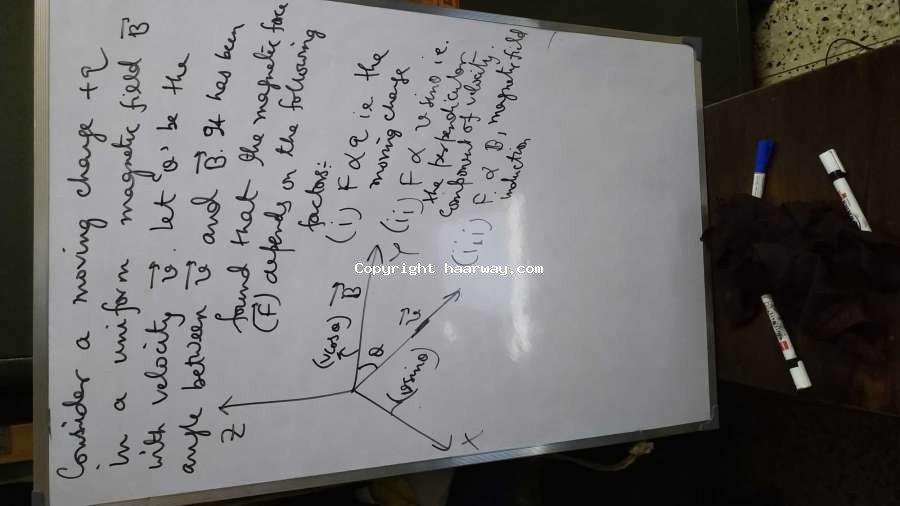 Consider a moving charge +q
in a uniform magnetic field B⃗
with velocity v⃗. Let 'θ' be the
angle between v⃗ and B⃗. It has been
found that the magnetic force
(F⃗) depends on the following
factors:-
(i) F ∝ q i.e the
moving charge
(ii) F ∝ v sinθ i.e.
the perpendicular
component of velocity.
(iii) F ∝ B, magnetic field
induction
Z
(vcosθ) B⃗
Y
θ
v⃗
(vsinθ)
X
Copyright haarway.com